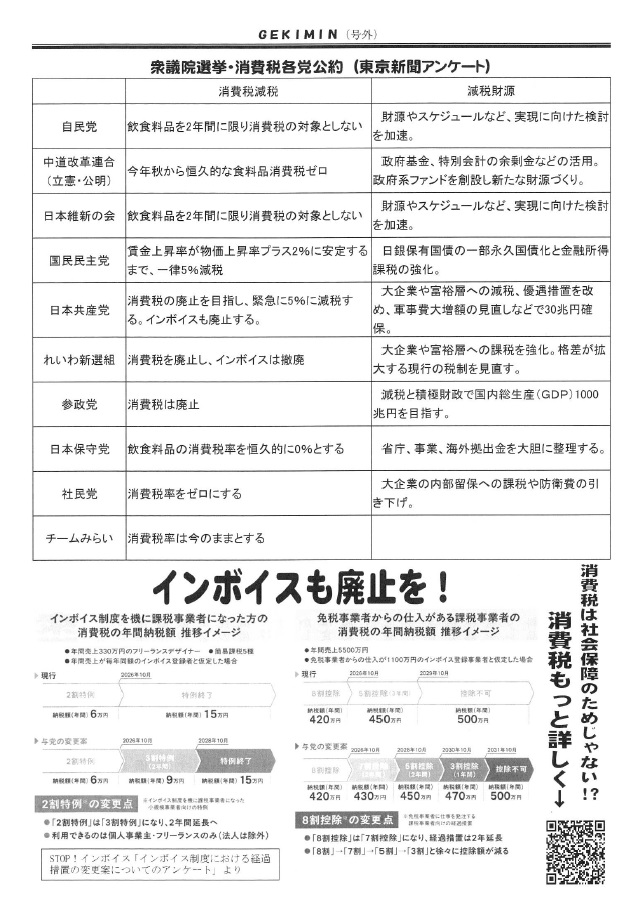 GEKIMIN（号外）
衆議院選挙・消費税各党公約（東京新聞アンケート）
消費税減税　減税財源
自民党　飲食料品を2年間に限り消費税の対象としない　財源やスケジュールなど、実現に向けた検討
を加速。
中道改革連合
（立憲・公明）　今年秋から恒久的な食料品消費税ゼロ　政府基金、特別会計の余剰金などの活用。
政府系ファンドを創設し新たな財源づくり。
日本維新の会　飲食料品を2年間に限り消費税の対象としない　財源やスケジュールなど、実現に向けた検討
を加速。
国民民主党　賃金上昇率が物価上昇率プラス2％に安定する
まで、一律5％減税　日銀保有国債の一部永久国債化と金融所得
課税の強化。
日本共産党　消費税の廃止を目指し、緊急に5％に減税す
る。インボイスも廃止する。　大企業や富裕層への減税、優遇措置を改
め、軍事費大増額の見直しなどで30兆円確
保。
れいわ新選組　消費税を廃止し、インボイスは撤廃　大企業や富裕層への課税を強化。格差が拡
大する現行の税制を見直す。
参政党　消費税は廃止　減税と積極財政で国内総生産（GDP）1000
兆円を目指す。
日本保守党　飲食料品の消費税率を恒久的に0％とする　省庁、事業、海外拠出金を大胆に整理する。
社民党　消費税率をゼロにする　大企業の内部留保への課税や防衛費の引
き下げ。
チームみらい　消費税率は今のままとする
インボイスも廃止を！
インボイス制度を機に課税事業者になった方の
消費税の年間納税額 推移イメージ
●年間売上330万円のフリーランスデザイナー　●簡易課税5種
●年間売上が毎年同額のインボイス登録者と仮定した場合
▶現行
2026年10月
2割特例　特例終了
納税額（年間）6万円　納税額（年間）15万円
▶与党の変更案
2026年10月　2028年10月
2割特例　3割特例
（2年間）　特例終了
納税額（年間）6万円　納税額（年間）9万円　納税額（年間）15万円
2割特例※の変更点　※インボイス制度を機に課税事業者になった
小規模事業者向けの特例
●「2割特例」は「3割特例」になり、2年間延長へ
●利用できるのは個人事業主・フリーランスのみ（法人は除外）
STOP！インボイス「インボイス制度における経過
措置の変更案についてのアンケート」より
免税事業者からの仕入がある課税事業者の
消費税の年間納税額 推移イメージ
●年間売上5500万円
●免税事業者からの仕入が1100万円のインボイス登録事業者と仮定した場合
▶現行
2026年10月　2029年10月
8割控除　5割控除（3年間）　控除不可
納税額（年間）
420万円　納税額（年間）
450万円　納税額（年間）
500万円
▶与党の変更案
2026年10月　2028年10月　2030年10月　2031年10月
8割控除　7割控除
（2年間）　5割控除
（2年間）　3割控除
（1年間）　控除不可
納税額（年間）
420万円　納税額（年間）
430万円　納税額（年間）
450万円　納税額（年間）
470万円　納税額（年間）
500万円
8割控除※の変更点　※免税事業者に仕事を発注する
課税事業者向けの経過措置
●「8割控除」は「7割控除」になり、経過措置は2年延長
●「8割」→「7割」→「5割」→「3割」と徐々に控除額が減る
消費税は社会保障のためじゃない！？
消費税もっと詳しく→